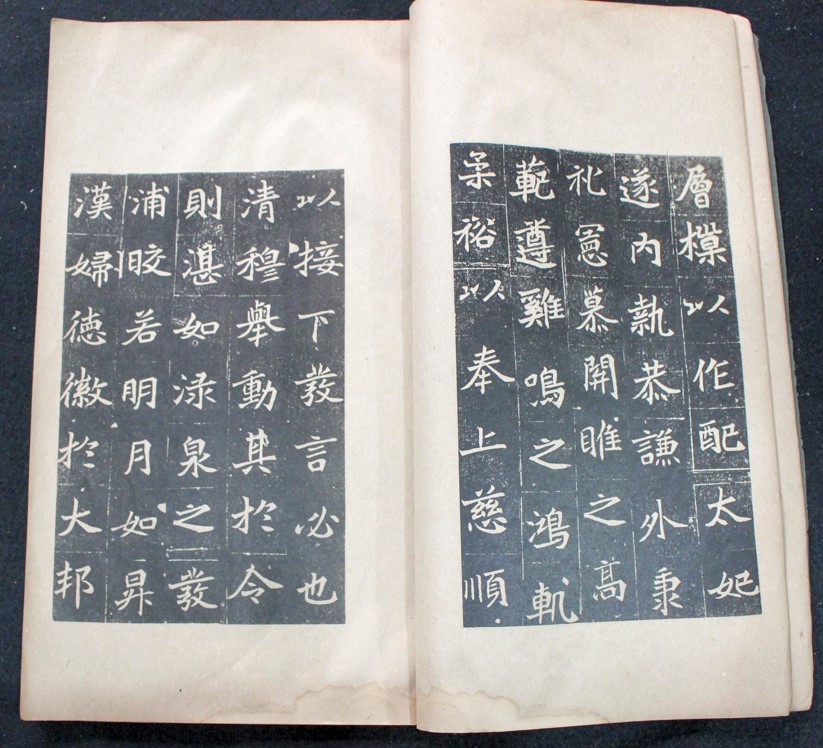 層樸以作配太妃
遂内執恭謙外秉
礼憲慕開睢之高
範遵雞鳴之鴻軌
柔裕以奉上慈順
以接下發言必也
清穆舉動其於令
則湛如淥泉之發
浦皎若明月如昇
漢婦德徽於大邦